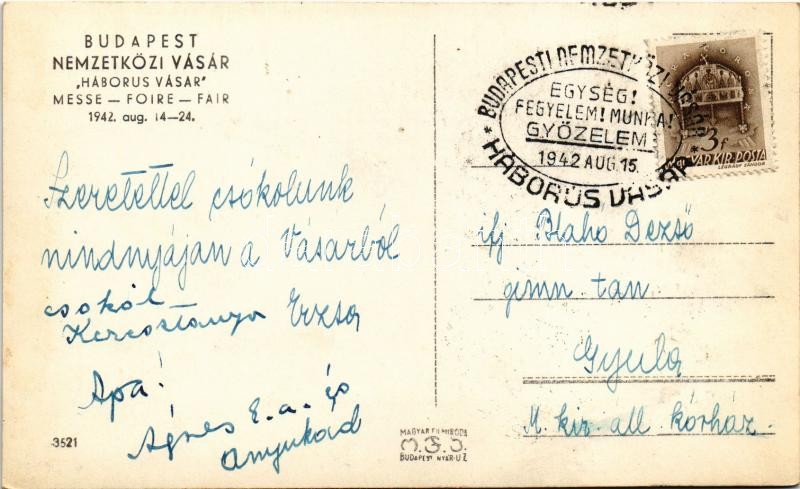 BUDAPEST
NEMZETKÖZI VÁSÁR
„HÁBORUS VÁSÁR"
MESSE — FOIRE — FAIR
1942. aug. 14—24.
Szeretettel csókolunk
mindnyájan a Vásárból
csokól
Keresztanya Erzsa
Apa!
Ágnes E. a. és
anyukád
3521
MAGYAR FILMIRODA
M.F.I.
BUDAPEST
* BUDAPESTI NEMZETKÖZI VÁSÁR *
EGYSÉG!
FEGYELEM! MUNKA!
GYŐZELEM
1942 AUG. 15.
HÁBORUS VÁSÁR
3f
MAGYAR KIR. POSTA
LÉGRÁDY SÁNDOR
ifj Blaho Dezső
gimn tan
Gyula
M. kir. áll kórház.